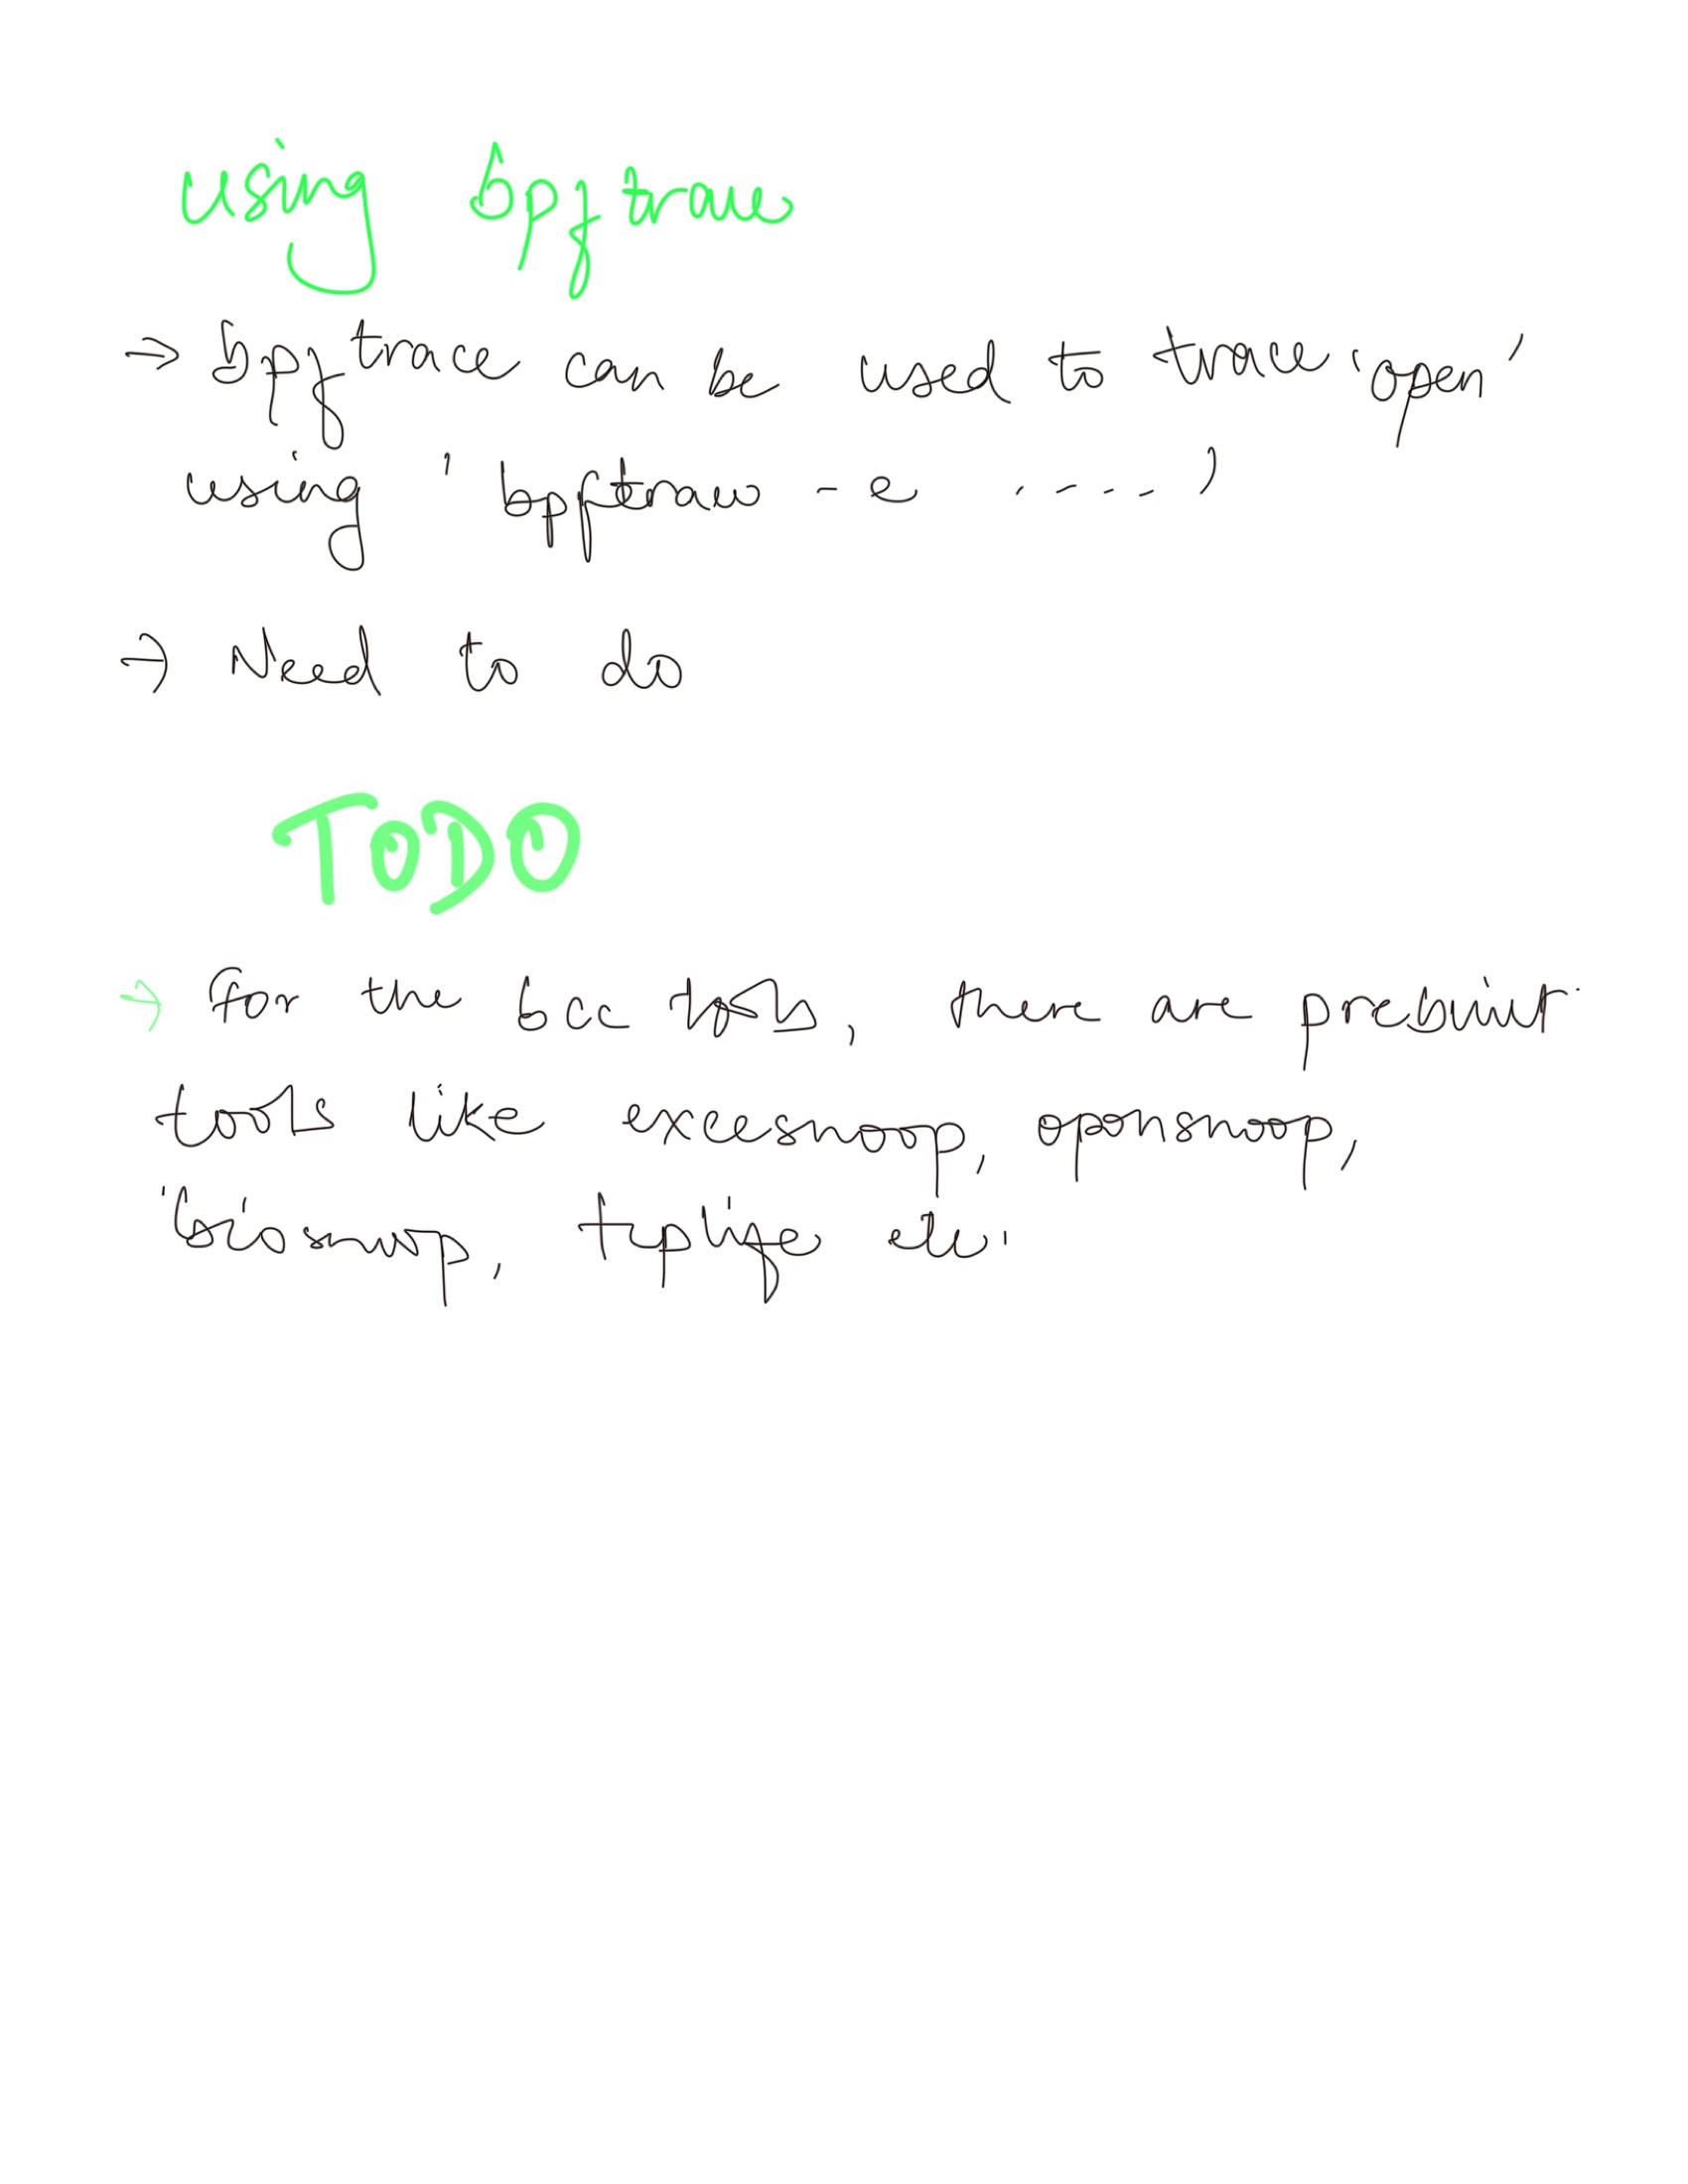 using bpftrace
→ bpftrace can be used to trace 'open'
using 'bpftrace -e .....'
→ Need to do
TODO
→ for the bcc tools, there are prebuilt
tools like execsnoop, opensnoop,
biosnoop, tcplife etc.